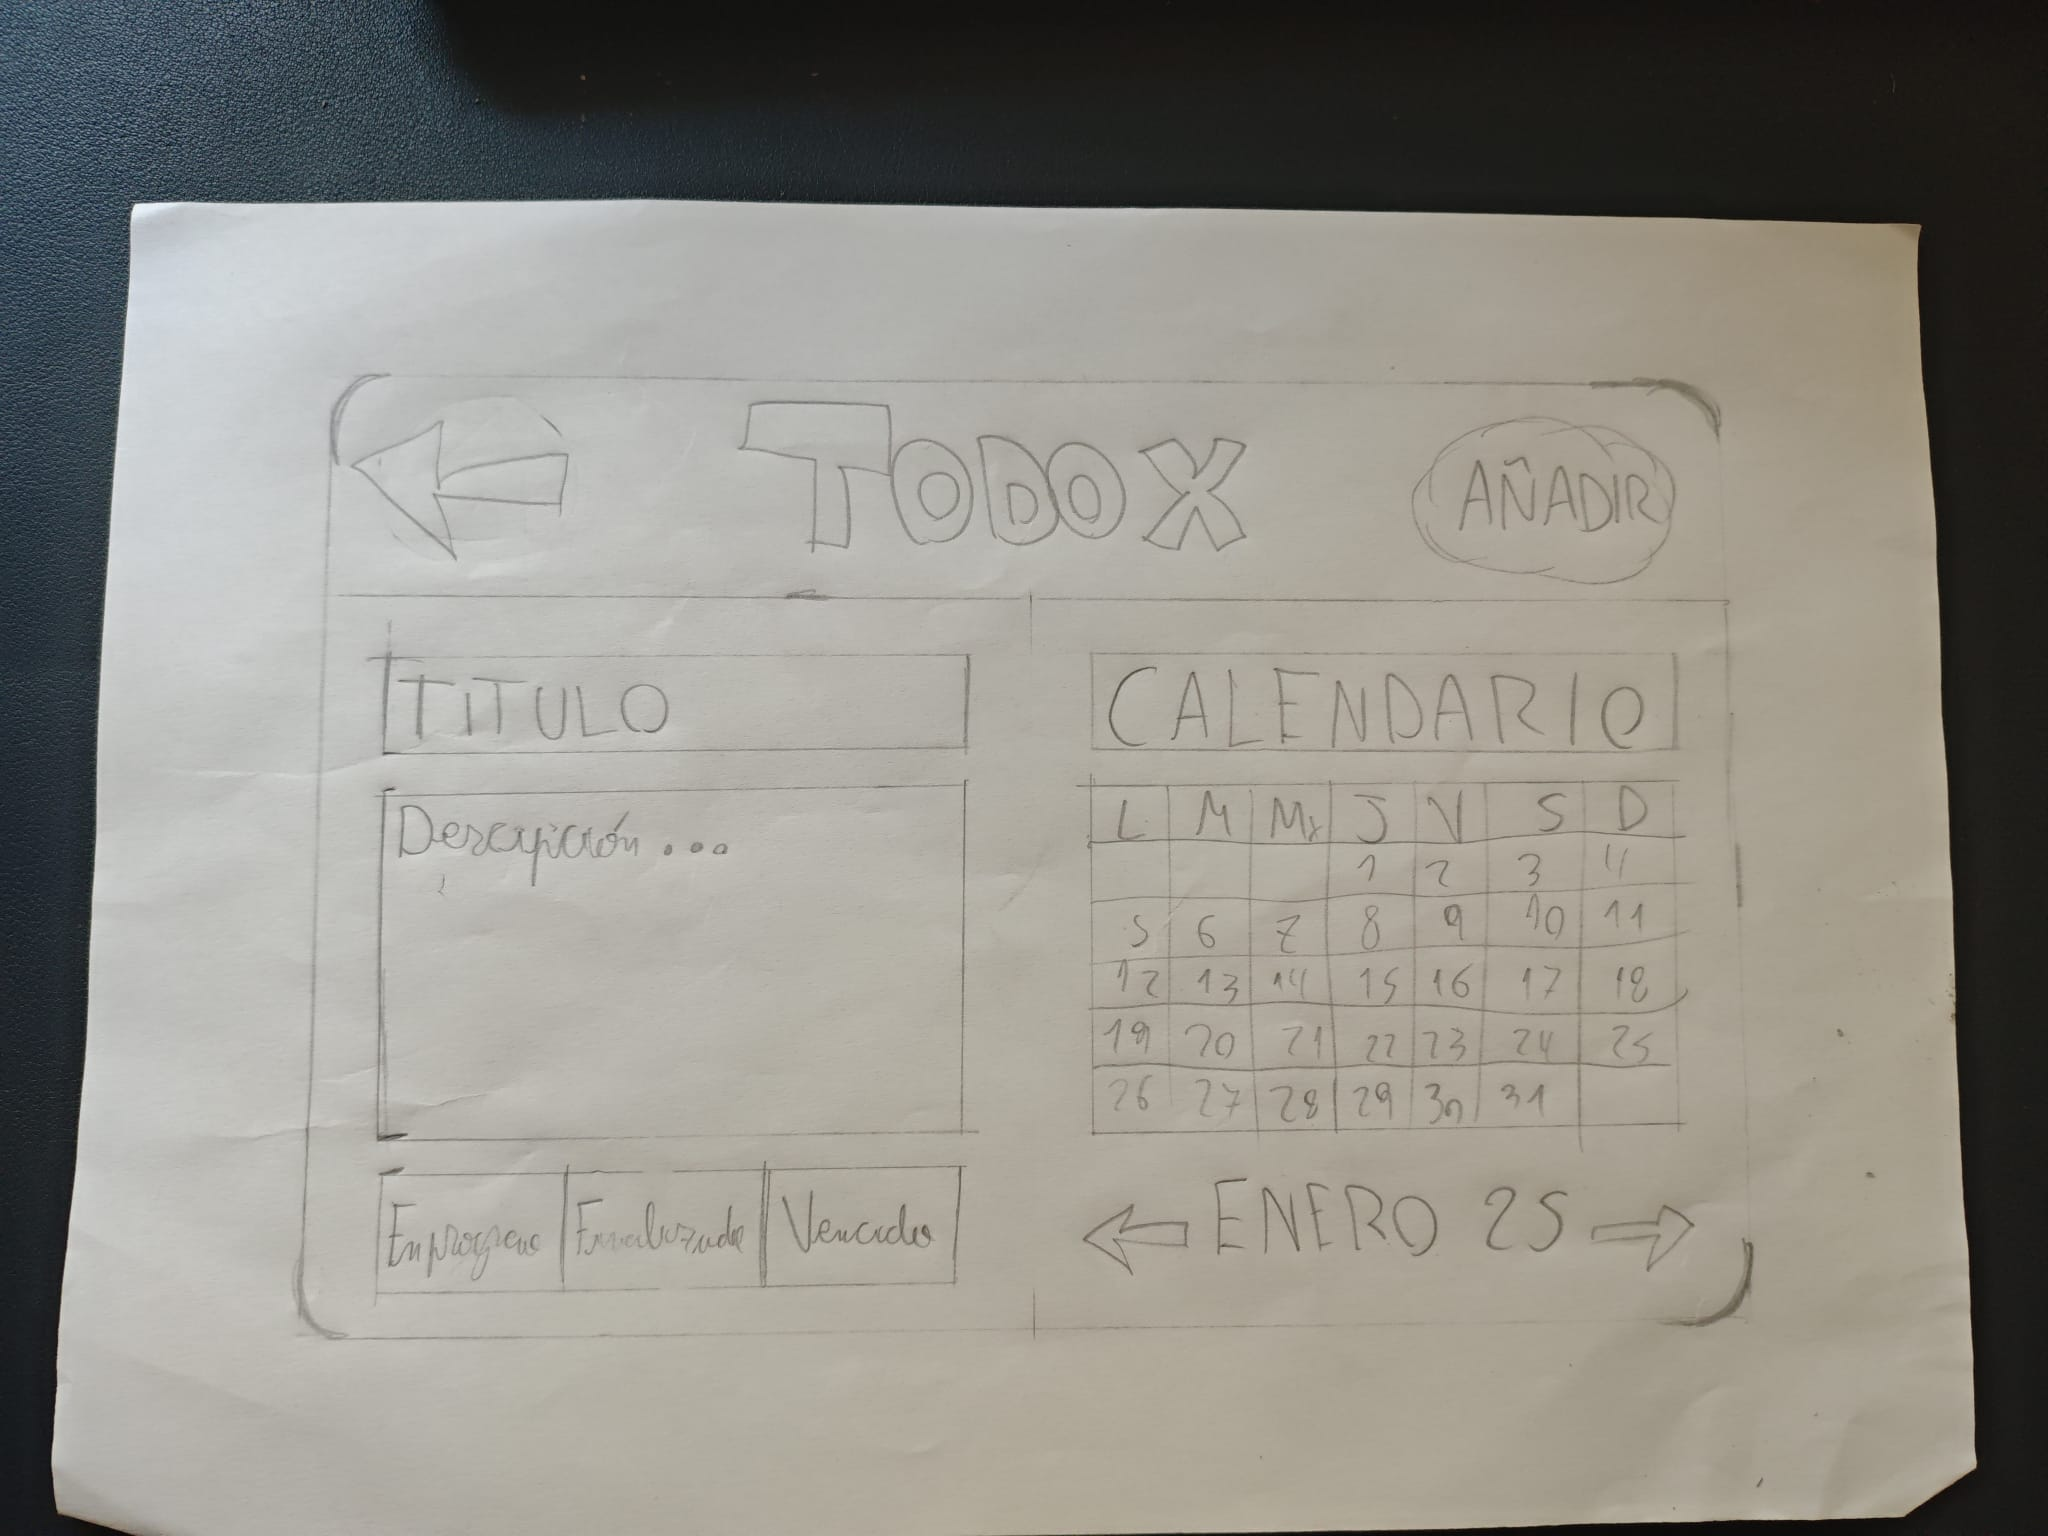 TODOX
AÑADIR
TITULO
Descripción...
En progreso
Finalizada
Vencida
CALENDARIO
L M Mx J V S D
1 2 3 4
5 6 7 8 9 10 11
12 13 14 15 16 17 18
19 20 21 22 23 24 25
26 27 28 29 30 31
ENERO 25